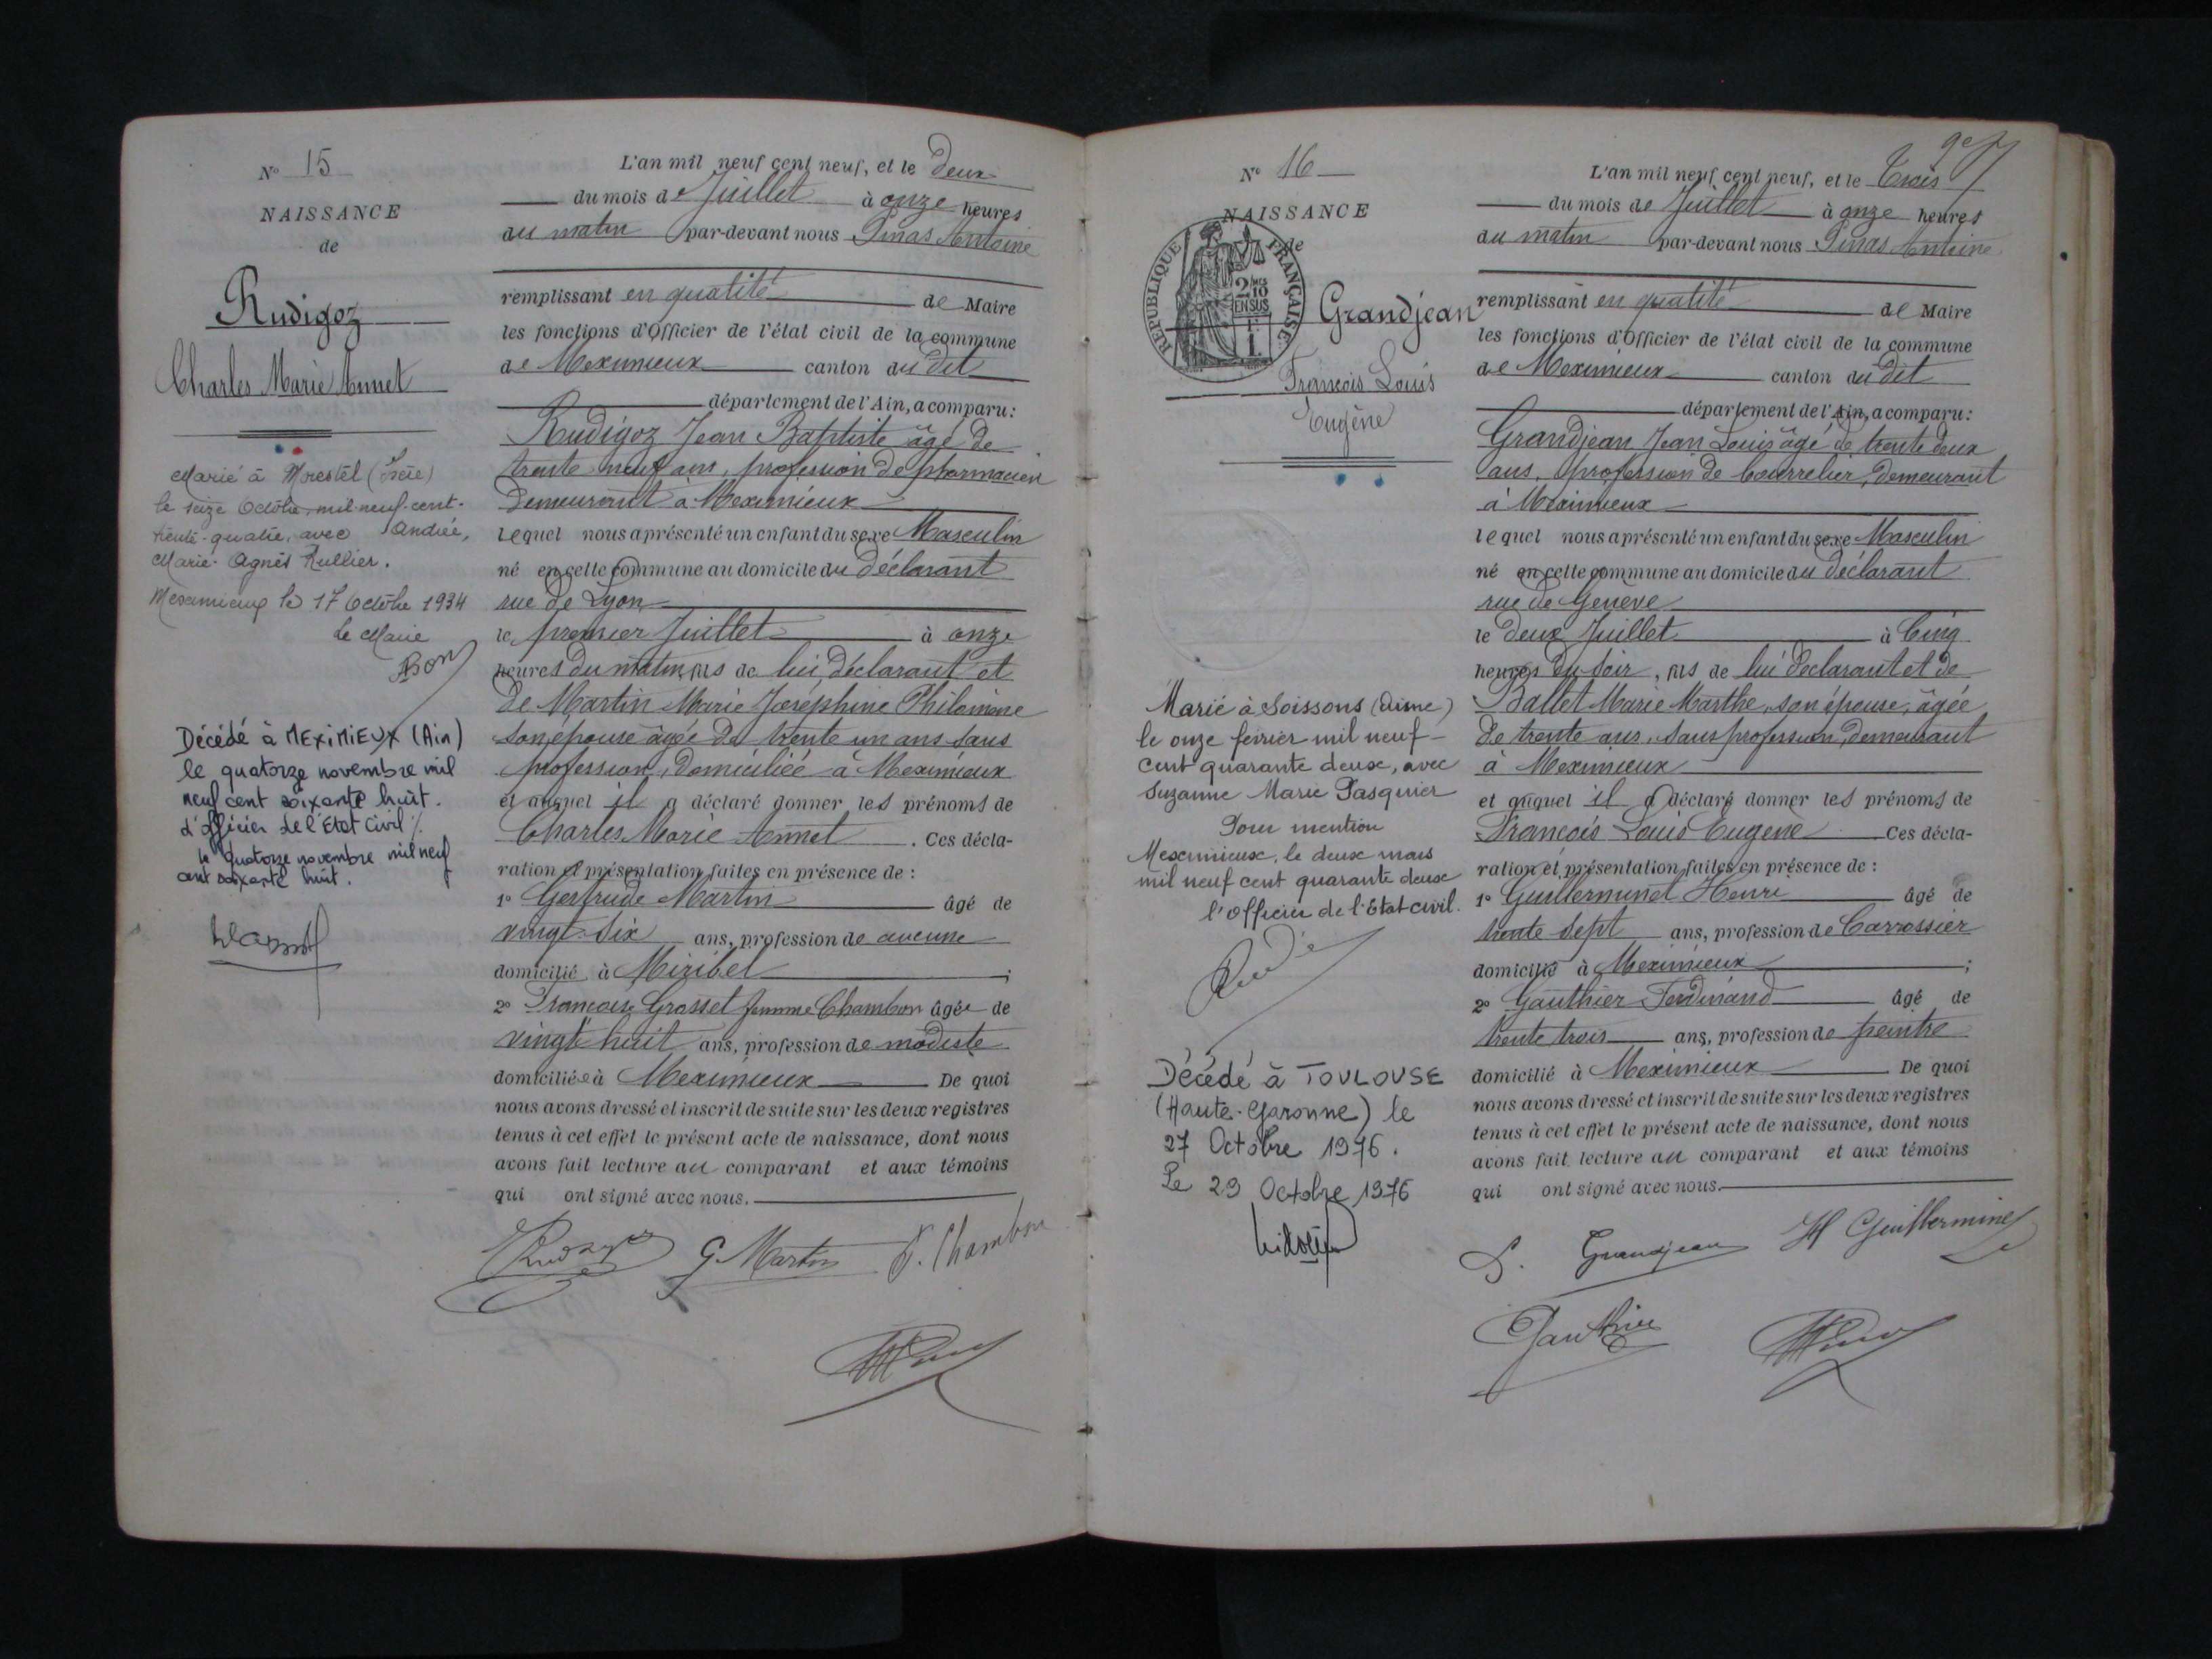 N° 15
NAISSANCE
de
Rudigoz
Charles Marie Annet
Marié à Morestel (Isère)
le seize Octobre mil-neuf-cent-
trente-quatre, avec Andrée,
Marie-Agnès Rullier.
Meximieux le 17 Octobre 1934
Le Maire
Décédé à MEXIMIEUX (Ain)
le quatorze novembre mil
neuf cent soixante huit.
L'officier de l'Etat Civil
le quatorze novembre mil neuf
cent soixante huit.
L'an mil neuf cent neuf, et le Deux
du mois de Juillet à onze heures
du matin par-devant nous Pinas Antoine
remplissant en qualité de Maire
les fonctions d'Officier de l'état civil de la commune
de Meximieux canton du dit
département de l'Ain, a comparu:
Rudigoz Jean Baptiste âgé de
trente neuf ans, profession de pharmacien
demeurant à Meximieux
lequel nous a présenté un enfant du sexe Masculin
né en cette commune au domicile du déclarant
rue de Lyon
le premier Juillet à onze
heures du matin, fils de lui, déclarant et
de Martin Marie Joséphine Philomène
son épouse âgée de trente un ans sans
profession, domiciliée à Meximieux
et auquel il a déclaré donner les prénoms de
Charles Marie Annet. Ces décla-
ration et présentation faites en présence de :
1° Gertrude Martin âgé de
vingt-six ans, profession de aucune
domicilié à Miribel ;
2° Françoise Grosset femme Chambon âgée de
vingt huit ans, profession de modiste
domiciliée à Meximieux De quoi
nous avons dressé et inscrit de suite sur les deux registres
tenus à cet effet le présent acte de naissance, dont nous
avons fait lecture au comparant et aux témoins
qui ont signé avec nous.
Rudigoz G. Martin F. Chambon
N° 16
NAISSANCE
de
REPUBLIQUE FRANÇAISE
2/10 EN SUS
Grandjean
François Louis
Eugène
Marié à Soissons (Aisne)
le onze février mil neuf-
cent quarante deux, avec
Suzanne Marie Pasquier
Pour mention
Meximieux, le deux mars
mil neuf cent quarante deux
l'officier de l'Etat civil.
Décédé à TOULOUSE
(Haute-Garonne) le
27 Octobre 1976.
Le 29 Octobre 1976
L'an mil neuf cent neuf, et le Trois
du mois de Juillet à onze heures
du matin par-devant nous Pinas Antoine
remplissant en qualité de Maire
les fonctions d'Officier de l'état civil de la commune
de Meximieux canton du dit
département de l'Ain, a comparu:
Grandjean Jean Louis âgé de trente deux
ans, profession de bourrelier, demeurant
à Meximieux
lequel nous a présenté un enfant du sexe Masculin
né en cette commune au domicile du déclarant
rue de Genève
le deux Juillet à Cinq
heures du soir, fils de lui déclarant et de
Ballet Marie Marthe, son épouse, âgée
de trente ans, sans profession, demeurant
à Meximieux
et auquel il a déclaré donner les prénoms de
François Louis Eugène Ces décla-
ration et présentation faites en présence de :
1° Guillerminet Henri âgé de
trente sept ans, profession de Carrossier
domicilié à Meximieux ;
2° Gauthier Ferdinand âgé de
trente trois ans, profession de peintre
domicilié à Meximieux De quoi
nous avons dressé et inscrit de suite sur les deux registres
tenus à cet effet le présent acte de naissance, dont nous
avons fait lecture au comparant et aux témoins
qui ont signé avec nous.
L. Grandjean H Guillerminet
Gauthier